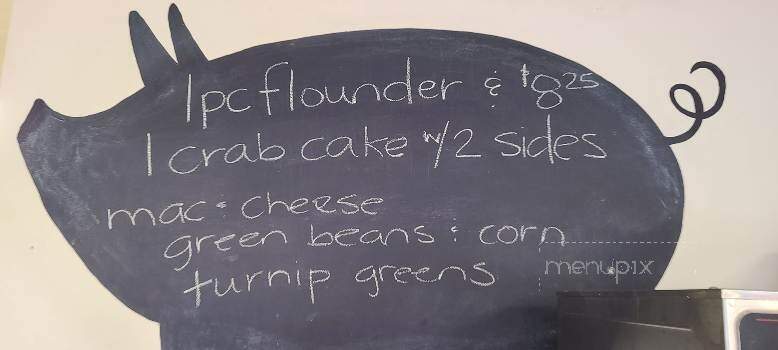 1 pc flounder & $8.25
1 crab cake w/2 sides
mac & cheese
green beans & corn
turnip greens
menupix